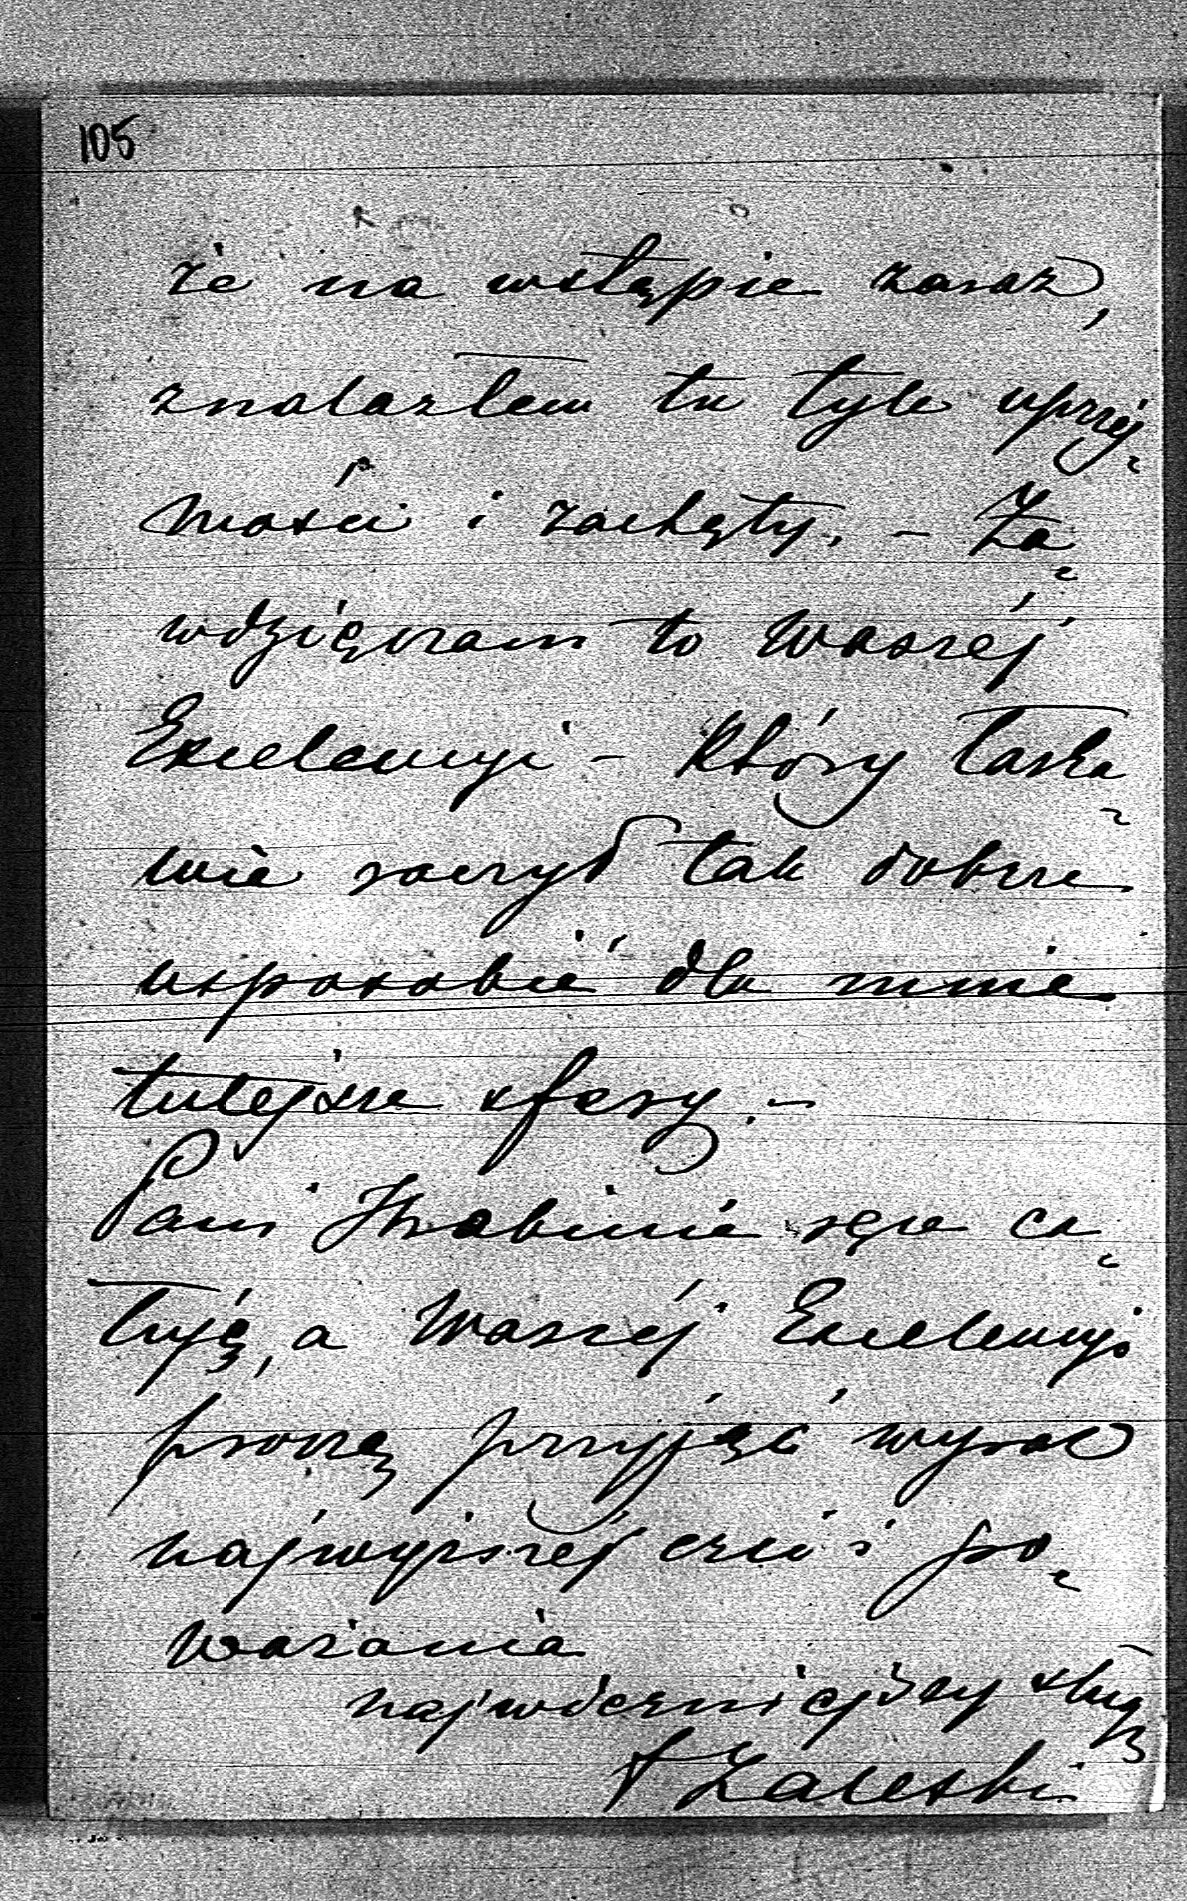 105
że na wstępie zaraz,
znalazłem tu tyle uprzéj-
mości i zachęty. – Za-
wdzięczam to Waszéj
Excelencyi – który łaska-
wie raczył tak dobrze
usposobić dla mnie
tutejsze sfery. –
Pani Hrabinie ręce ca-
łuję, a Waszéj Excelencyi
proszę przyjąć wyraz
najwyższéj czci i po-
ważania
najwierniejszy sługa
F Zaleski